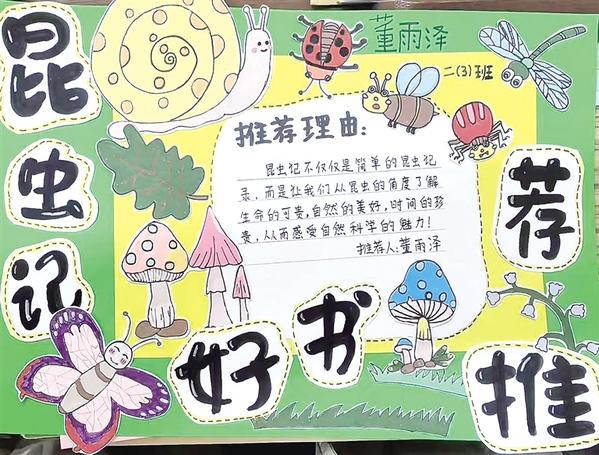 昆虫记
好书推荐
董雨泽
二(3)班
推荐理由:
昆虫记不仅仅是简单的昆虫记
录,而是让我们从昆虫的角度了解
生命的可贵,自然的美好,时间的珍
贵,从而感受自然科学的魅力!
推荐人:董雨泽